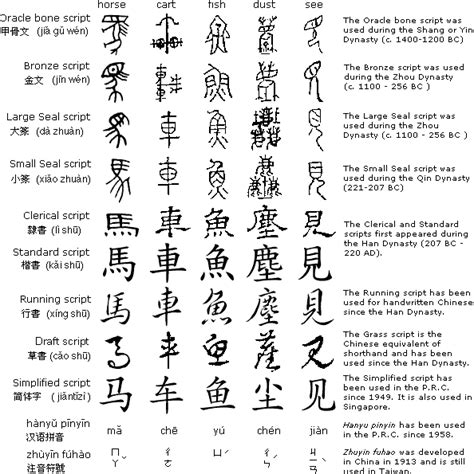 horse cart fish dust see
Oracle bone script
甲骨文 (jiǎ gǔ wén)
The Oracle bone script was
used during the Shang or Yin
Dynasty (c. 1400-1200 BC)
Bronze script
金文 (jīn wén)
The Bronze script was used
during the Zhou Dynasty
(c. 1100 - 256 BC )
Large Seal script
大篆 (dà zhuàn)
The Large Seal script was
used during the Zhou
Dynasty (c. 1100 - 256 BC )
Small Seal script
小篆 (xiǎo zhuàn)
The Small Seal script was
used during the Qin Dynasty
(221-207 BC)
Clerical script
隸書 (lì shū)
馬 車 魚 塵 見
The Clerical and Standard
scripts first appeared during
the Han Dynasty (207 BC -
220 AD).
Standard script
楷書 (kǎi shū)
馬 車 魚 塵 見
Running script
行書 (xíng shū)
馬 車 魚 塵 見
The Running script has been
used for handwritten Chinese
since the Han Dynasty.
Draft script
草書 (cǎo shū)
The Grass script is the
Chinese equivalent of
shorthand and has been
used since the Han Dynasty.
Simplified script
简体字 (jiǎntǐzì)
马 车 鱼 尘 见
The Simplified script has
been used in the P.R.C.
since 1949. It is also used in
Singapore.
hànyǔ pīnyīn
汉语拼音
mǎ chē yú chén jiàn
Hanyu pinyin has been used
in the P.R.C. since 1958.
zhùyīn fúhào
注音符號
Zhuyin fuhao was developed
in China in 1913 and is still
used in Taiwan.